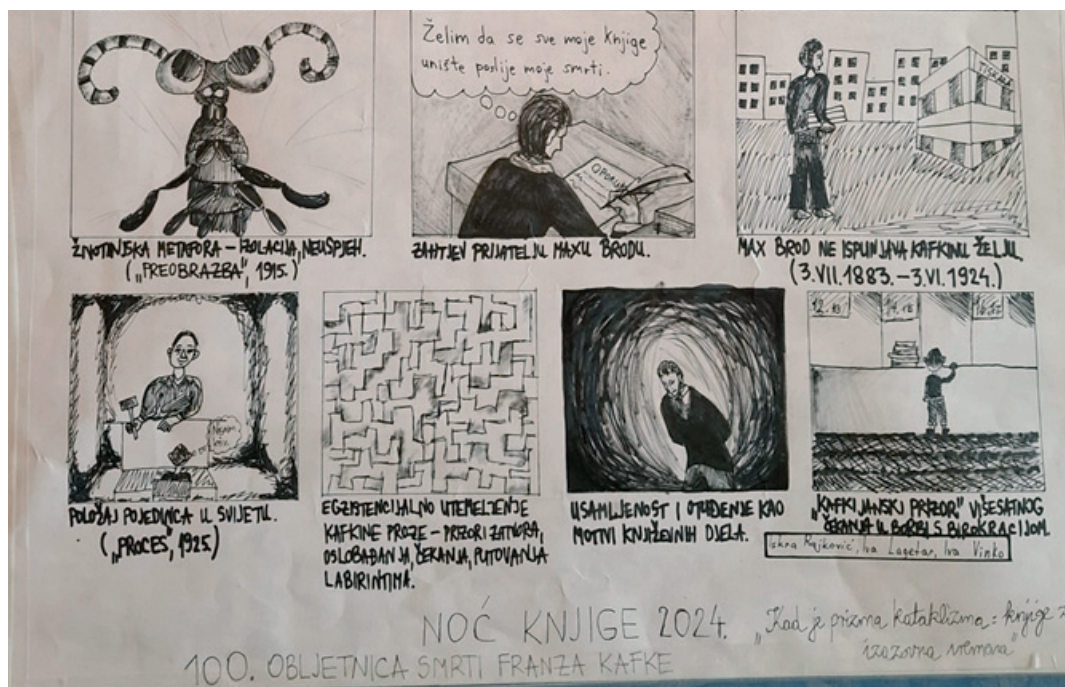 Želim da se sve moje knjige
unište poslije moje smrti.
OPORUKA
TISKARA
ŽIVOTINJSKA METAFORA – IZOLACIJA, NEUSPJEH.
(„PREOBRAZBA", 1915.)
ZAHTJEV PRIJATELJU MAXU BRODU.
MAX BROD NE ISPUNJAVA KAFKINU ŽELJU.
(3.VII.1883. – 3.VI.1924.)
Nisam
kriv.
POLOŽAJ POJEDINCA U SVIJETU.
(„PROCES", 1925.)
EGZISTENCIJALNO UTEMELJENJE
KAFKINE PROZE – PRIZORI ZATVORA,
OSLOBAĐANJA, ČEKANJA, PUTOVANJA
LABIRINTIMA.
USAMLJENOST I OTUĐENJE KAO
MOTIVI KNJIŽEVNIH DJELA.
„KAFKIJANSKI PRIZOR" VIŠESATNOG
ČEKANJA U BORBI S BIROKRACIJOM.
Iskra Rajković, Iva Lagetar, Iva Vinko
NOĆ KNJIGE 2024.
100. OBLJETNICA SMRTI FRANZA KAFKE
„Kad je prizma kataklizma: knjige z
izazovna vremena"